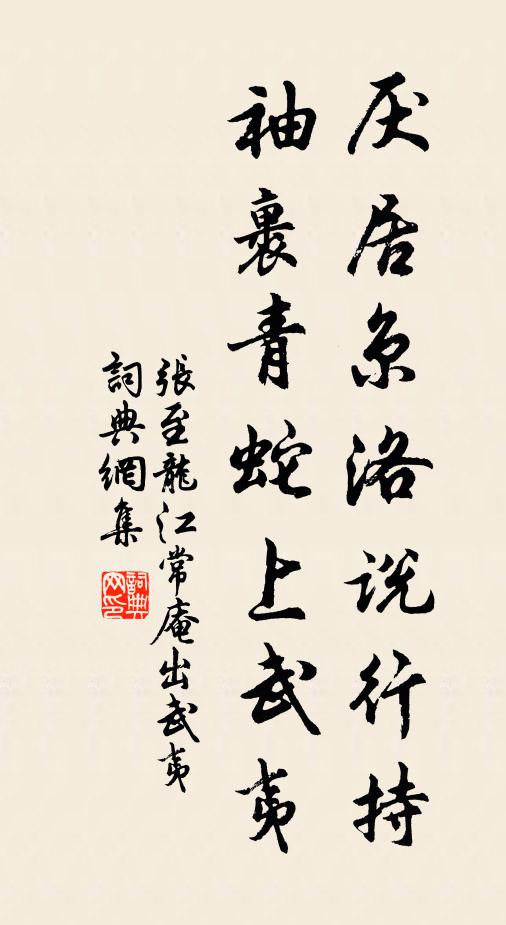 厌居京洛说行持
袖裹青蛇上武夷
張至龍江常庵出武夷
詞典網集
詞典网印